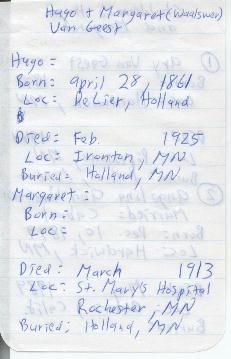 Hugo + Margaret (Waalswer)
Van Geest
Hugo:
Born: April 28, 1861
Loc: DeLier, Holland
Died: Feb. 1925
Loc: Ironton, MN
Buried: Holland, MN
Margaret:
Born:
Loc:
Died: March 1913
Loc: St. Mary's Hospital
Rochester, MN
Buried: Holland, MN